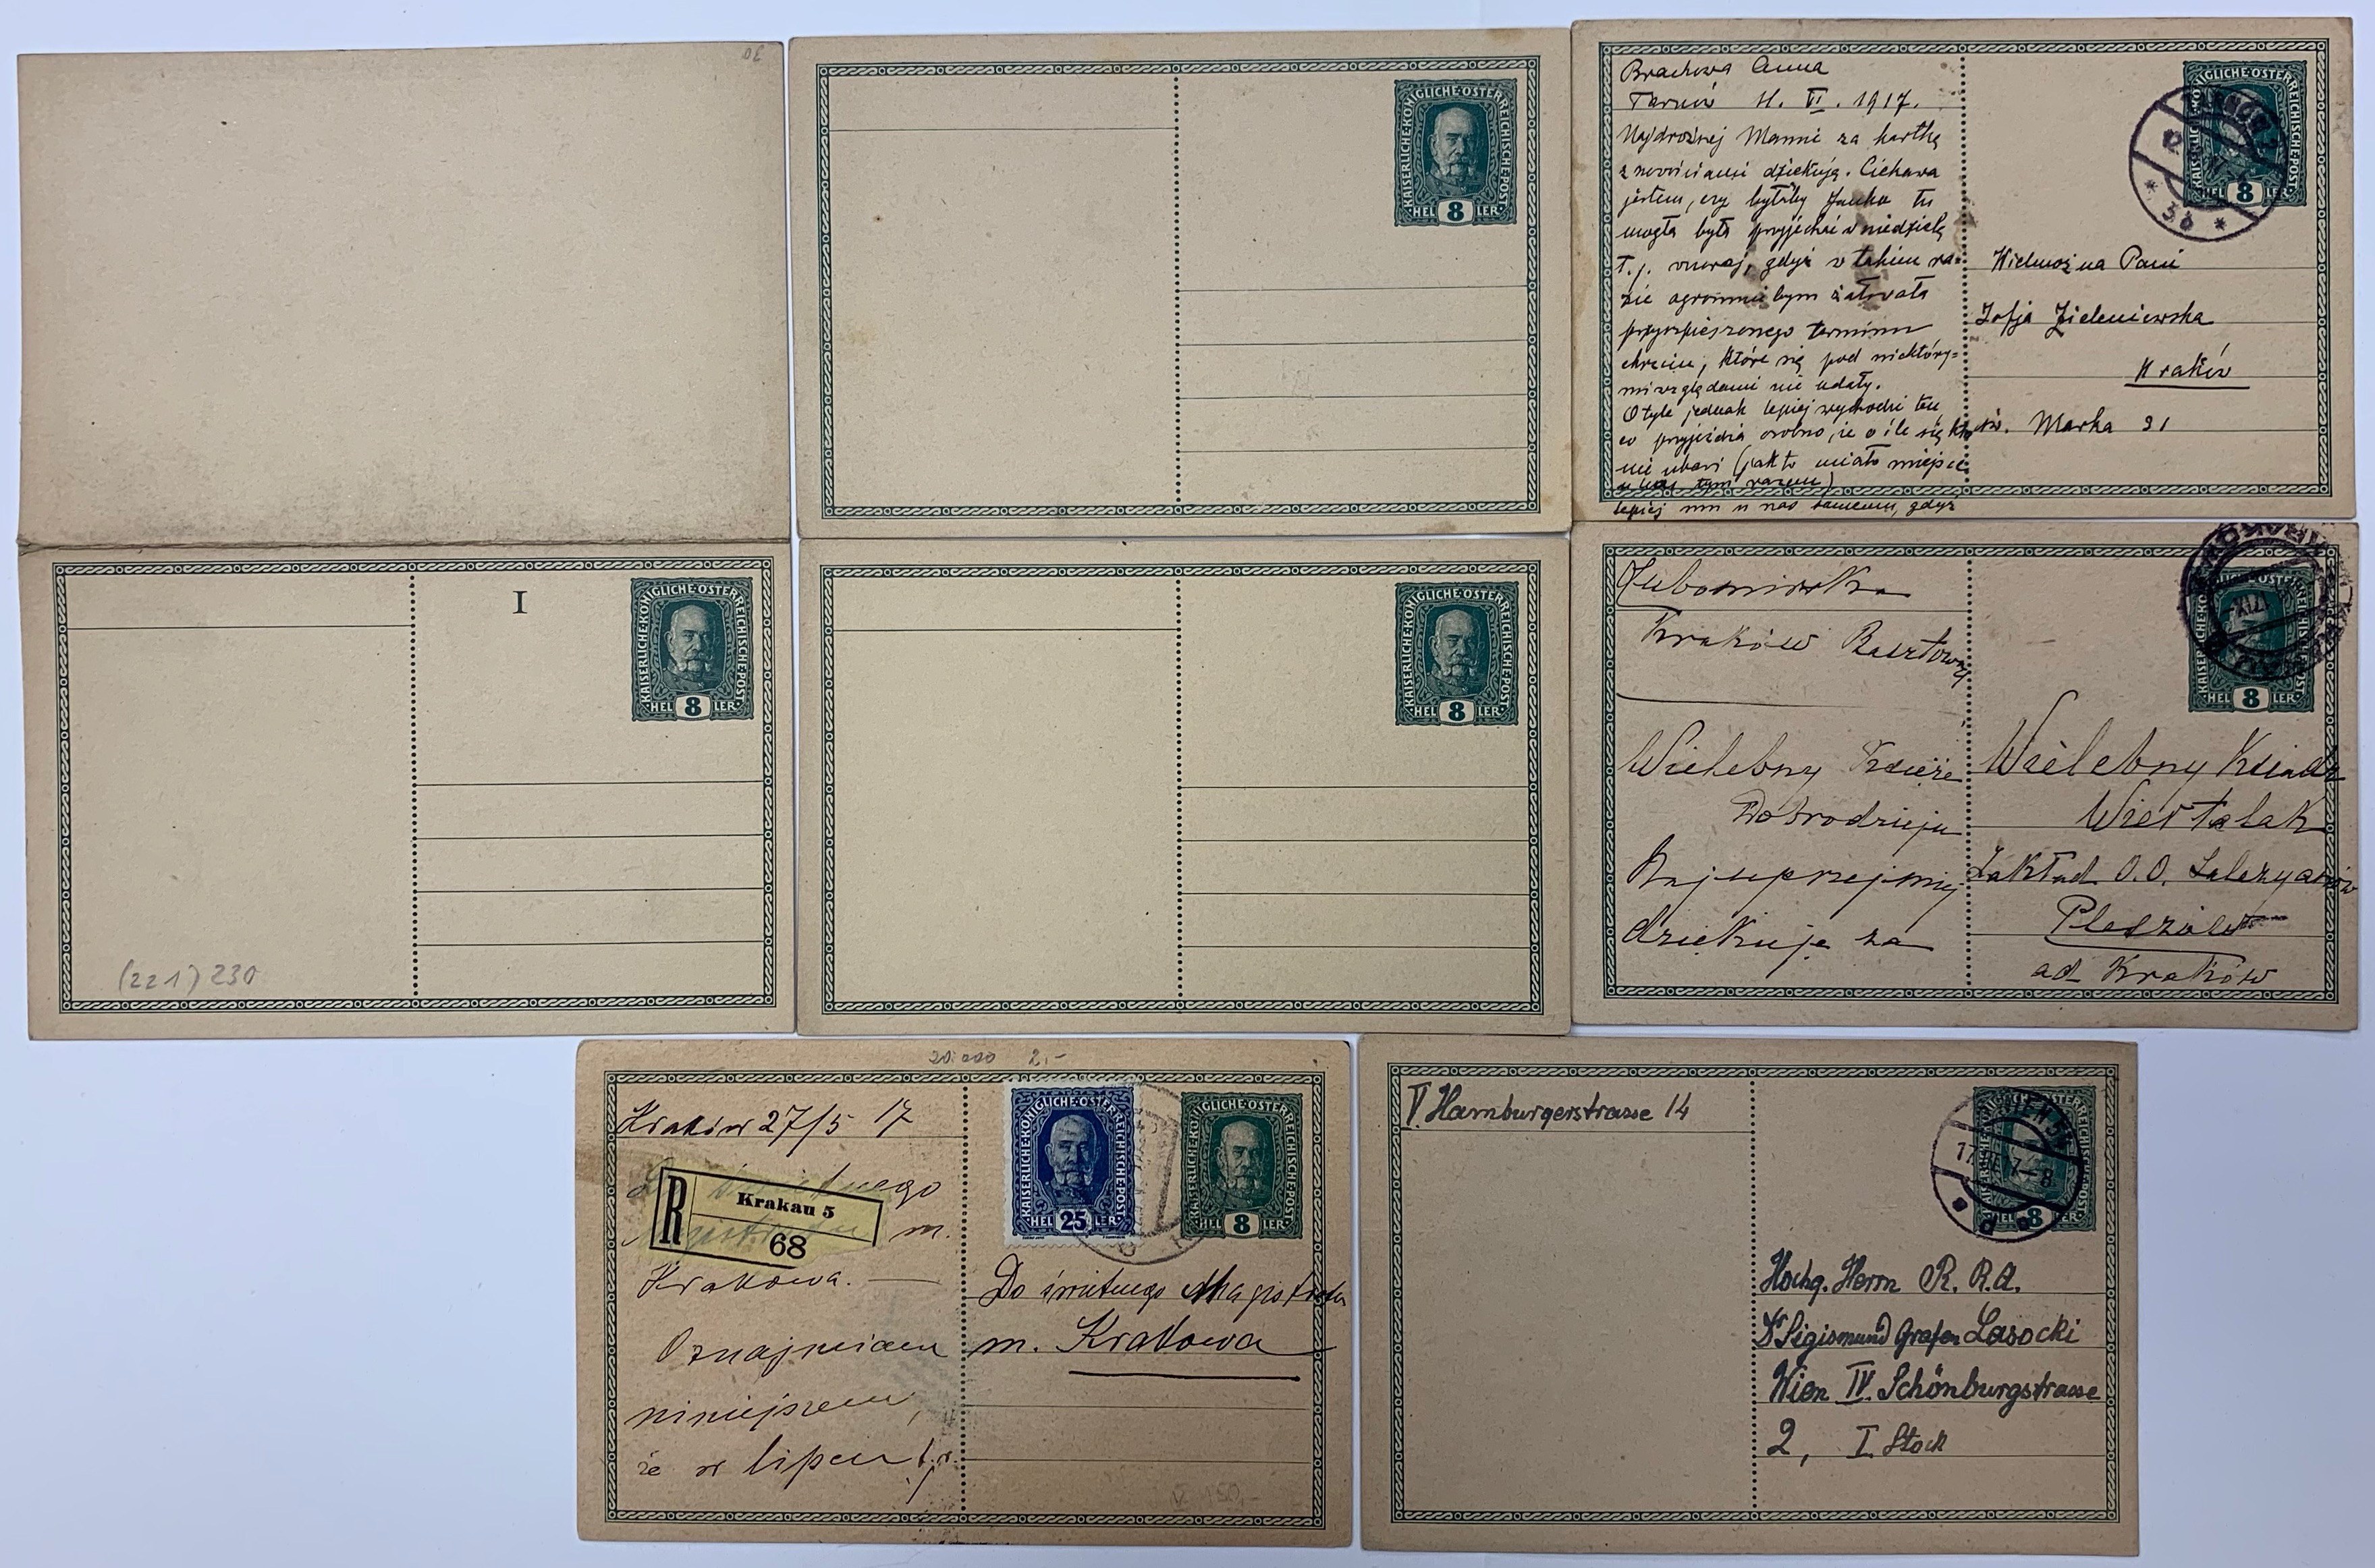 KAISERLICHE·KÖNIGLICHE·ÖSTERREICHISCHE·POST·
HEL 8 LER
Brachowa Anna
Tarnów 11. VI. 1917.
Najdroższej Mamci za kartkę
z nowinami dziękuję. Ciekawa
jestem, czy byłaby Janka tu
mogła była przyjechać w niedzielę
t. j. wczoraj, gdyż w takim ra-
zie ogromnie bym żałowała
przyspieszonego terminu
chrzcin, które się pod niektóry-
mi względami nie udały.
O tyle jednak lepiej wychodzi ten
co przyjeżdża osobno, że o ile się kto
nie ubawi (jak to miało miejsce
u nas tym razem)
lepiej mu u nas samemu, gdyż
KAISERLICHE·KÖNIGLICHE·ÖSTERREICHISCHE·POST·
HEL 8 LER
12
3 b
Wielmożna Pani
Zofja Zieleniewska
Kraków
św. Marka 31
I
KAISERLICHE·KÖNIGLICHE·ÖSTERREICHISCHE·POST·
HEL 8 LER
(221) 230
KAISERLICHE·KÖNIGLICHE·ÖSTERREICHISCHE·POST·
HEL 8 LER
Lubomirska
Kraków Basztowa
Wielebny Księże
Dobrodzieju
Najuprzejmiej
dziękuję za
8
Wielebny Ksiądz
Wiertelak
Zakład O.O. Salezyanów
ad Kraków
20.000 2,-
Kraków 27/5 17
R Krakau 5
68
m.
Krakowa.
Oznajmiam
niniejszem,
że w lipcu b.r.
KAISERLICHE·KÖNIGLICHE·ÖSTERREICHISCHE·POST·
HEL 25 LER
KAISERLICHE·KÖNIGLICHE·ÖSTERREICHISCHE·POST·
HEL 8 LER
Do świetnego Magistratu
m. Krakowa
V. Hamburgerstrasse 14
WIEN
8
Hochg. Herrn R. R. A.
Dr Sigismund Grafen Lasocki
Wien IV. Schönburgstrasse
2, I. Stock